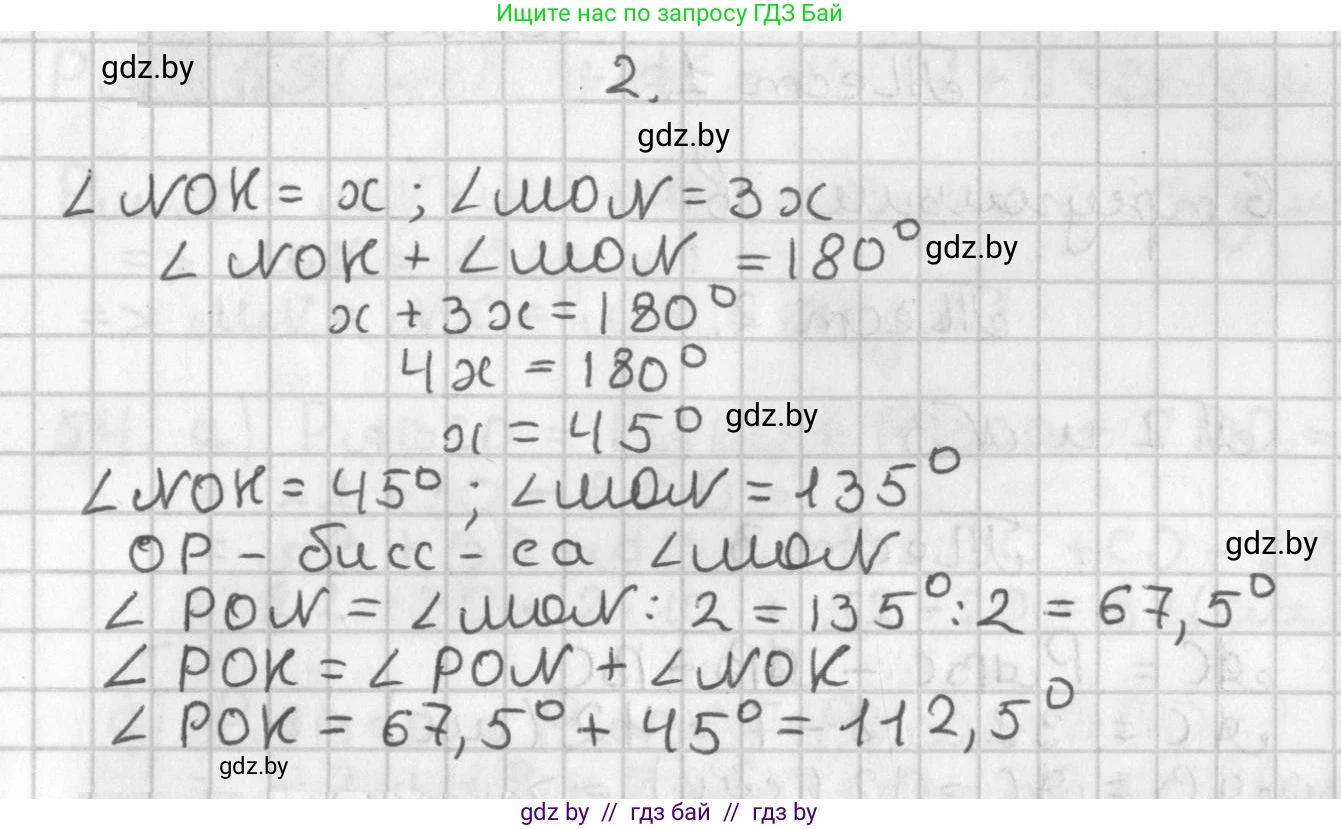 Ищите нас по запросу ГДЗ Бай
gdz.by
2.
gdz.by
∠NOK = x ; ∠MON = 3x
∠NOK + ∠MON = 180° gdz.by
x + 3x = 180°
4x = 180°
x = 45° gdz.by
∠NOK = 45° ; ∠MON = 135°
OP - бисс - са ∠MON gdz.by
∠PON = ∠MON : 2 = 135° : 2 = 67,5°
∠POK = ∠PON + ∠NOK
∠POK = 67,5° + 45° = 112,5°
gdz.by
gdz by // гдз бай // гдз by